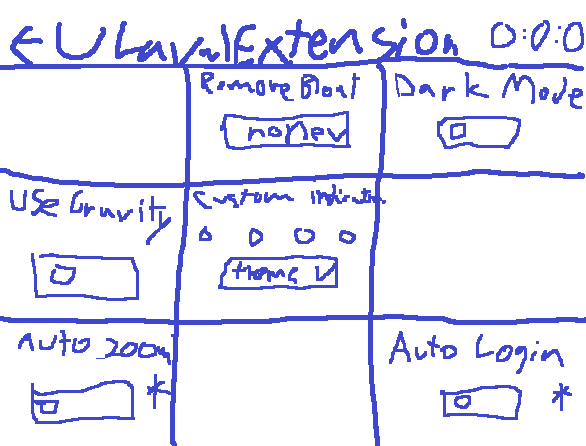 EULavalExtension 0:0:0
Remove Bloat
Dark Mode
Use Gravity
Custom Indicator
Home V
Auto zoom
*
Auto Login
*